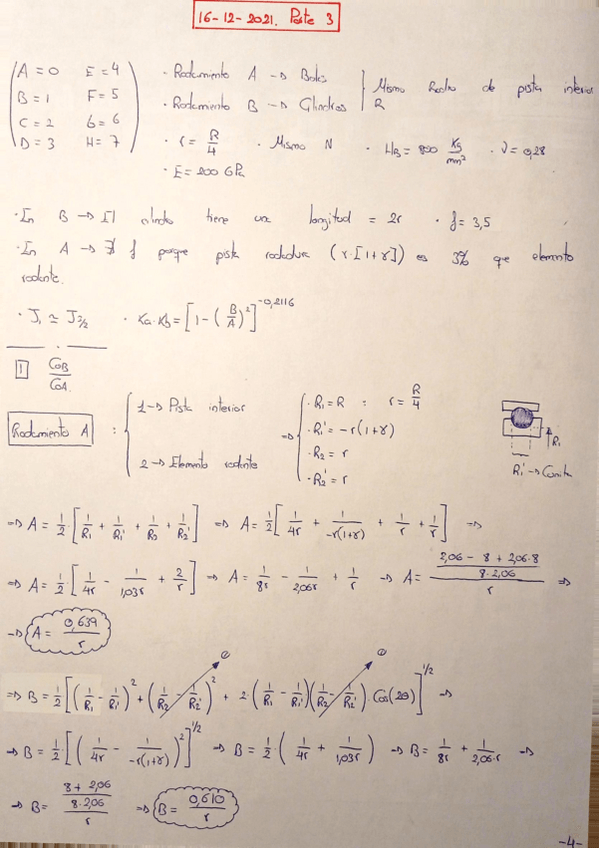 16-12-2021. Parte 3
A = 0 E = 4
B = 1 F = 5
C = 2 G = 6
D = 3 H = 7
· Rodamiento A → Bolas
· Rodamiento B → Cilindros
} Mismo Radio de pista interior R
· r = R/4 · Mismo N · H_B = 800 Kg/mm² · ν = 0,28
· E = 200 GPa
· En B → El cilindro tiene una longitud = 2r · f = 3,5
· En A → ∄ f porque pista rodadura (r·[1+γ]) es 3% que elemento
rodante.
· J₁ ≃ J₃/₂ · Ka·Kb = [1 - (B/A)²]^-0,2116
1 C_OB/C_OA.
Rodamiento A : { 1 → Pista interior
2 → Elemento rodante
⇒ { · R₁ = R : r = R/4
· R₁' = -r(1+γ)
· R₂ = r
· R₂' = r
R₁
R₁' →
⇒ A = 1/2·[1/R₁ + 1/R₁' + 1/R₂ + 1/R₂'] ⇒ A = 1/2[1/4r + 1/-r(1+γ) + 1/r + 1/r] ⇒
⇒ A = 1/2·[1/4r - 1/1,03r + 2/r] → A = 1/8r - 1/2,06r + 1/r → A = ((2,06 - 8 + 2,06·8)/(8·2,06))/r ⇒
→ A = 0,639/r
⇒ B = 1/2[(1/R₁ - 1/R₁')² + (1/R₂ - 1/R₂')² + 2·(1/R₁ - 1/R₁')(1/R₂ - 1/R₂')·Cos(2θ)]^1/2 →
→ B = 1/2·[(1/4r - 1/-r(1+γ))²]^1/2 ⇒ B = 1/2·(1/4r + 1/1,03r) → B = 1/8r + 1/2,06·r →
→ B = ((8 + 2,06)/(8·2,06))/r ⇒ B = 0,610/r
-4-